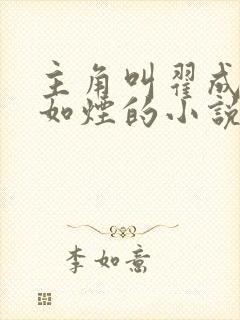 主角叫翟成
如煙的小說
李如意